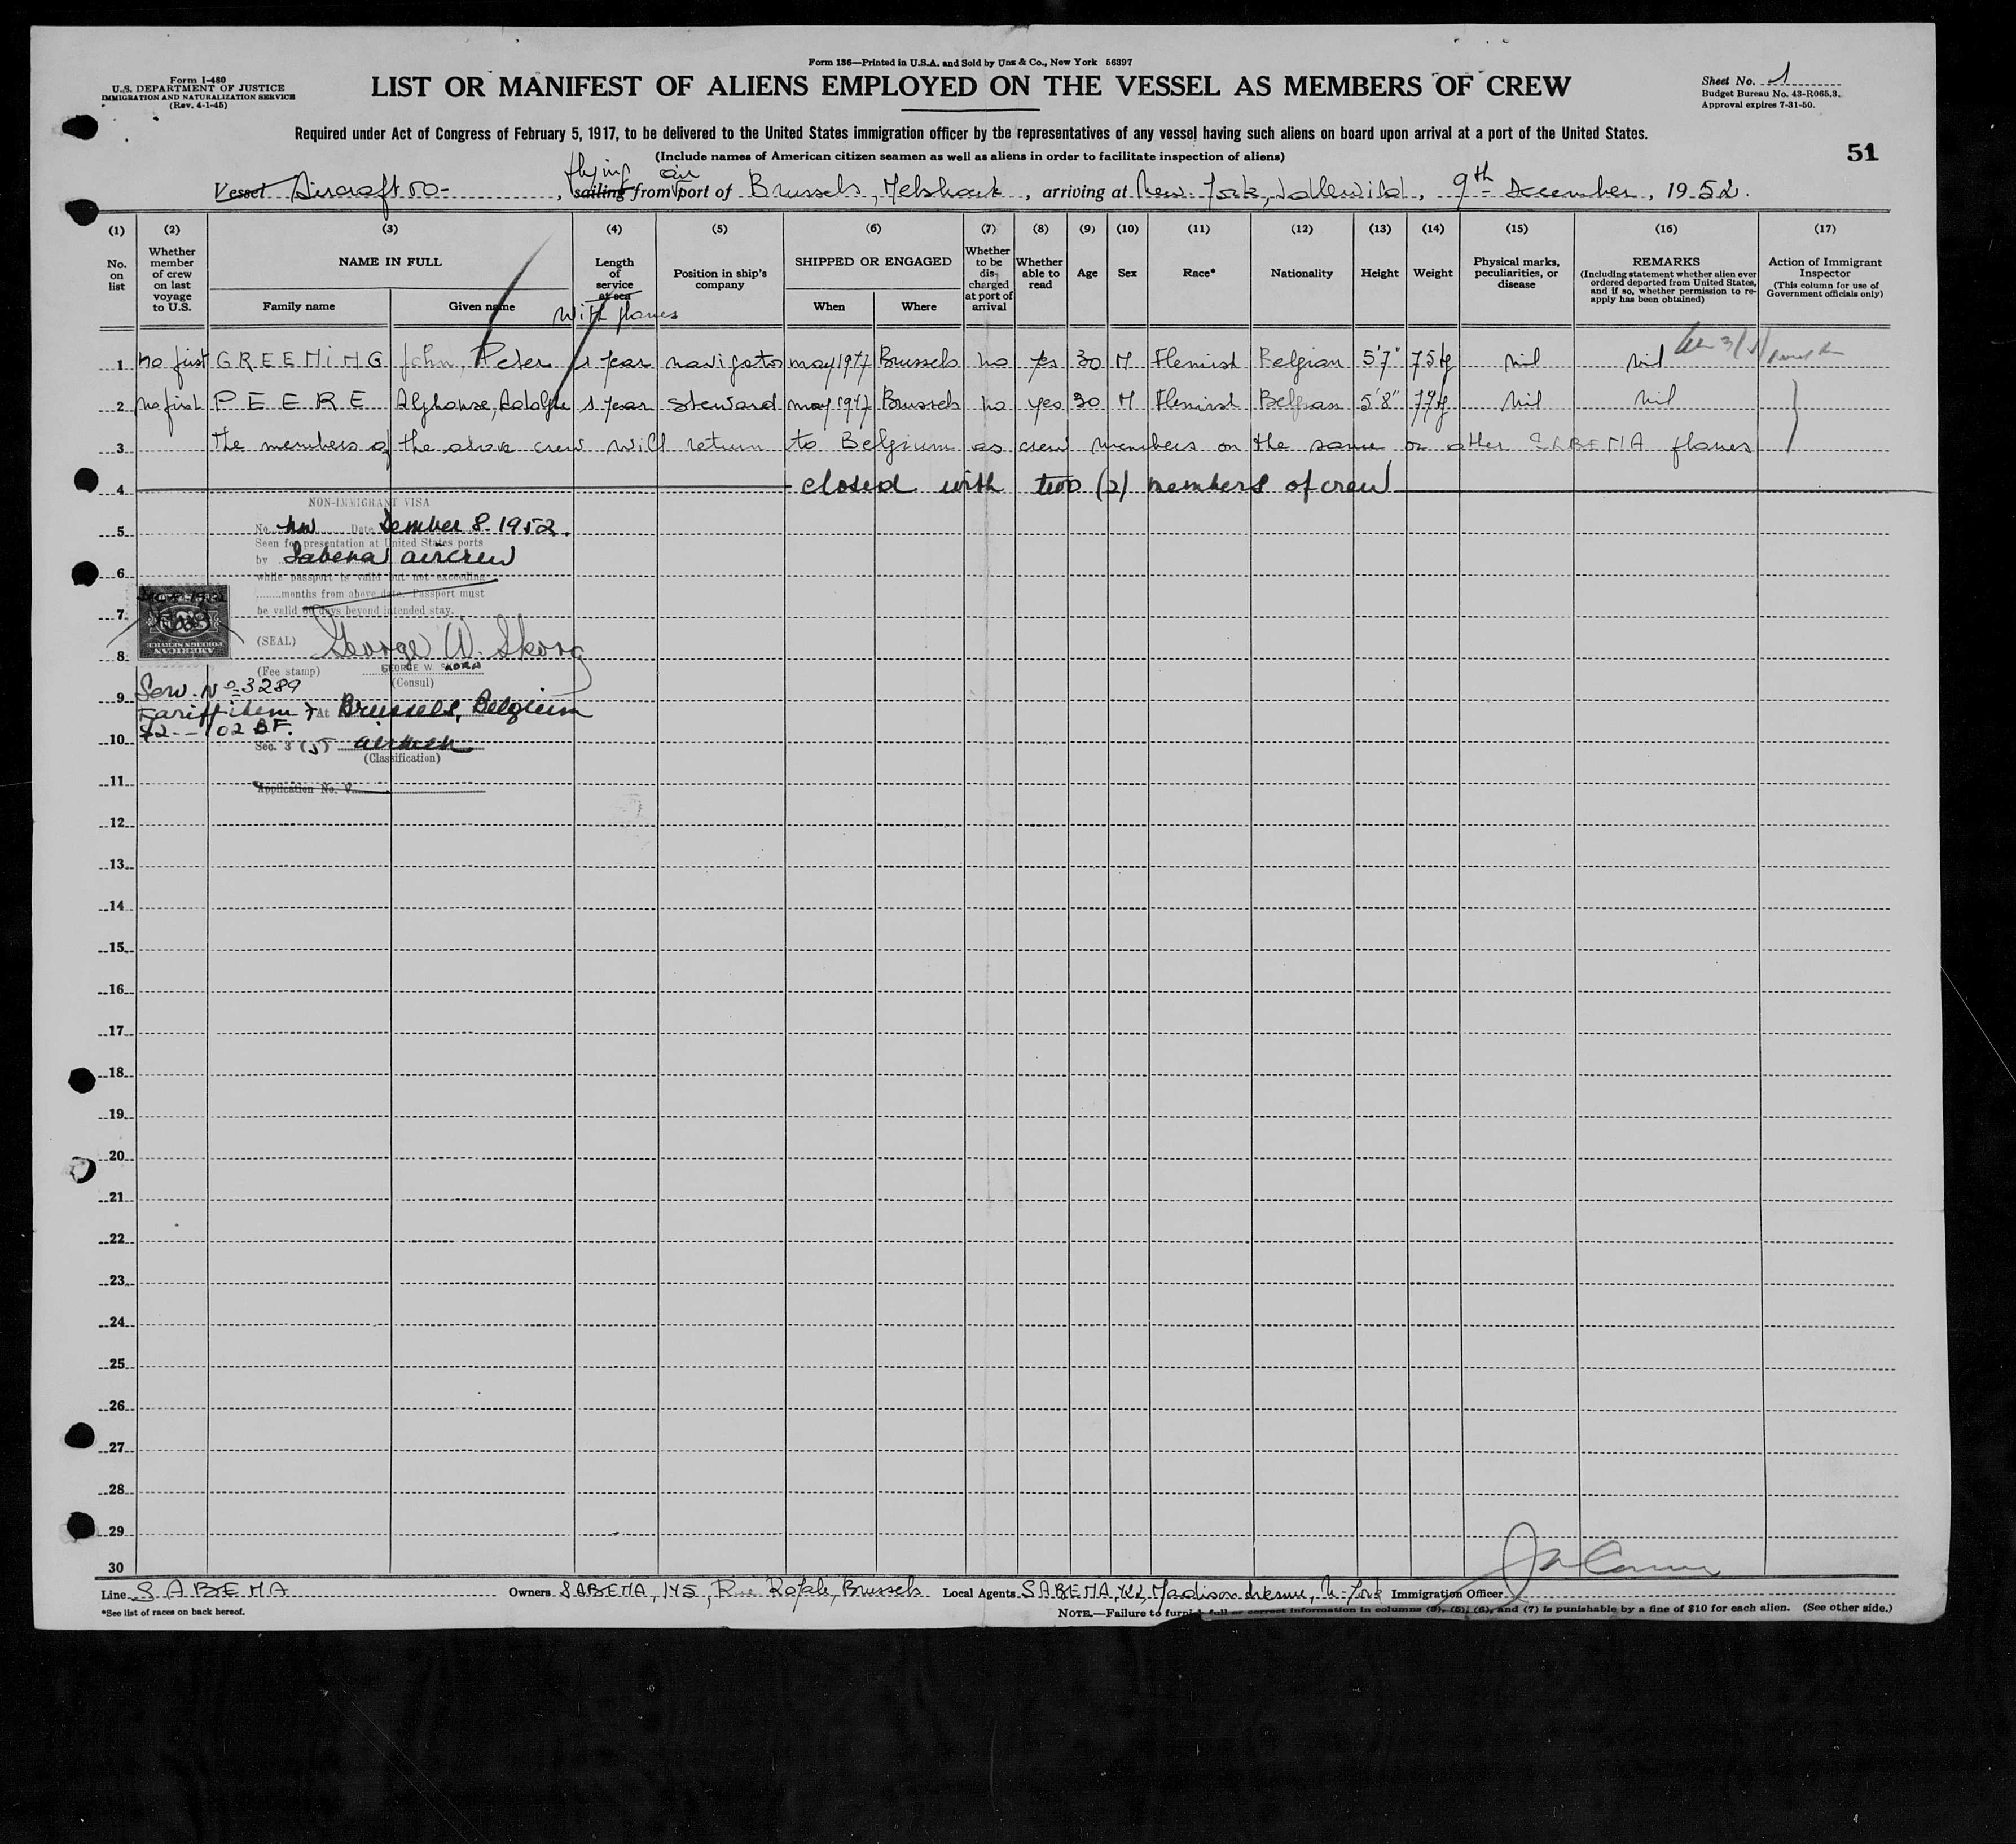 Form 136—Printed in U.S.A. and Sold by Unz & Co., New York 56397
Form I-480
U.S. DEPARTMENT OF JUSTICE
IMMIGRATION AND NATURALIZATION SERVICE
(Rev. 4-1-45)
LIST OR MANIFEST OF ALIENS EMPLOYED ON THE VESSEL AS MEMBERS OF CREW
Sheet No. 1
Budget Bureau No. 43-R065.3.
Approval expires 7-31-50.
Required under Act of Congress of February 5, 1917, to be delivered to the United States immigration officer by the representatives of any vessel having such aliens on board upon arrival at a port of the United States.
(Include names of American citizen seamen as well as aliens in order to facilitate inspection of aliens)
51
flying air
Vessel Aircraft OO-, sailing from port of Brussels, Melsbroek, arriving at New-York, Idlewild, 9th December, 1952.
(1) (2) (3) (4) (5) (6) (7) (8) (9) (10) (11) (12) (13) (14) (15) (16) (17)
No. on list
Whether member of crew on last voyage to U.S.
NAME IN FULL
Family name
Given name
Length of service at sea
with planes
Position in ship's company
SHIPPED OR ENGAGED
When
Where
Whether to be discharged at port of arrival
Whether able to read
Age
Sex
Race*
Nationality
Height
Weight
Physical marks, peculiarities, or disease
REMARKS
(Including statement whether alien ever ordered deported from United States, and if so, whether permission to reapply has been obtained)
Action of Immigrant Inspector
(This column for use of Government officials only)
1 no first GREENING John, Peter 1 year navigator may 1947 Brussels no yes 30 M Flemish Belgian 5'7" 75kg nil nil
2 no first PEERE Alphonse, Adolphe 1 year steward may 1947 Brussels no yes 30 M Flemish Belgian 5'8" 77kg nil nil
3 The members of the above crew will return to Belgium as crew members on the same or other SABENA planes
4 closed with two (2) members of crew
NON-IMMIGRANT VISA
5 No. Date December 8-1952.
Seen for presentation at United States ports
by Sabena aircrew
6 while passport is valid but not exceeding
months from above date. Passport must
7 be valid 60 days beyond intended stay.
(SEAL) George W. Skora
8 GEORGE W. SKORA
(Fee stamp) (Consul)
AMERICAN
FOREIGN SERVICE
Serv. No 3289
9 Tariff item 7 At Brussels, Belgium
$2-- 102 BF.
10 Sec. 3 (5) airmen
(Classification)
11 Application No. V
12
13
14
15
16
17
18
19
20
21
22
23
24
25
26
27
28
29
30
Line SABENA Owners SABENA, 145, Rue Royale, Brussels Local Agents SABENA, 422, Madison Avenue, N-York Immigration Officer
*See list of races on back hereof.
NOTE.—Failure to furnish full or correct information in columns (3), (5), (6), and (7) is punishable by a fine of $10 for each alien. (See other side.)